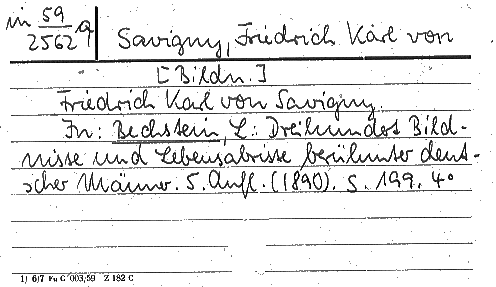 in 59/2562 q
Savigny, Friedrich Karl von
[Bildn.]
Friedrich Karl von Savigny.
In: Bechstein, L.: Dreihundert Bild-
nisse und Lebensabrisse berühmter deut-
scher Männer. 5. Aufl. (1890). S. 199. 4°
1) 6/7 Fu G 003/59 Z 182 C